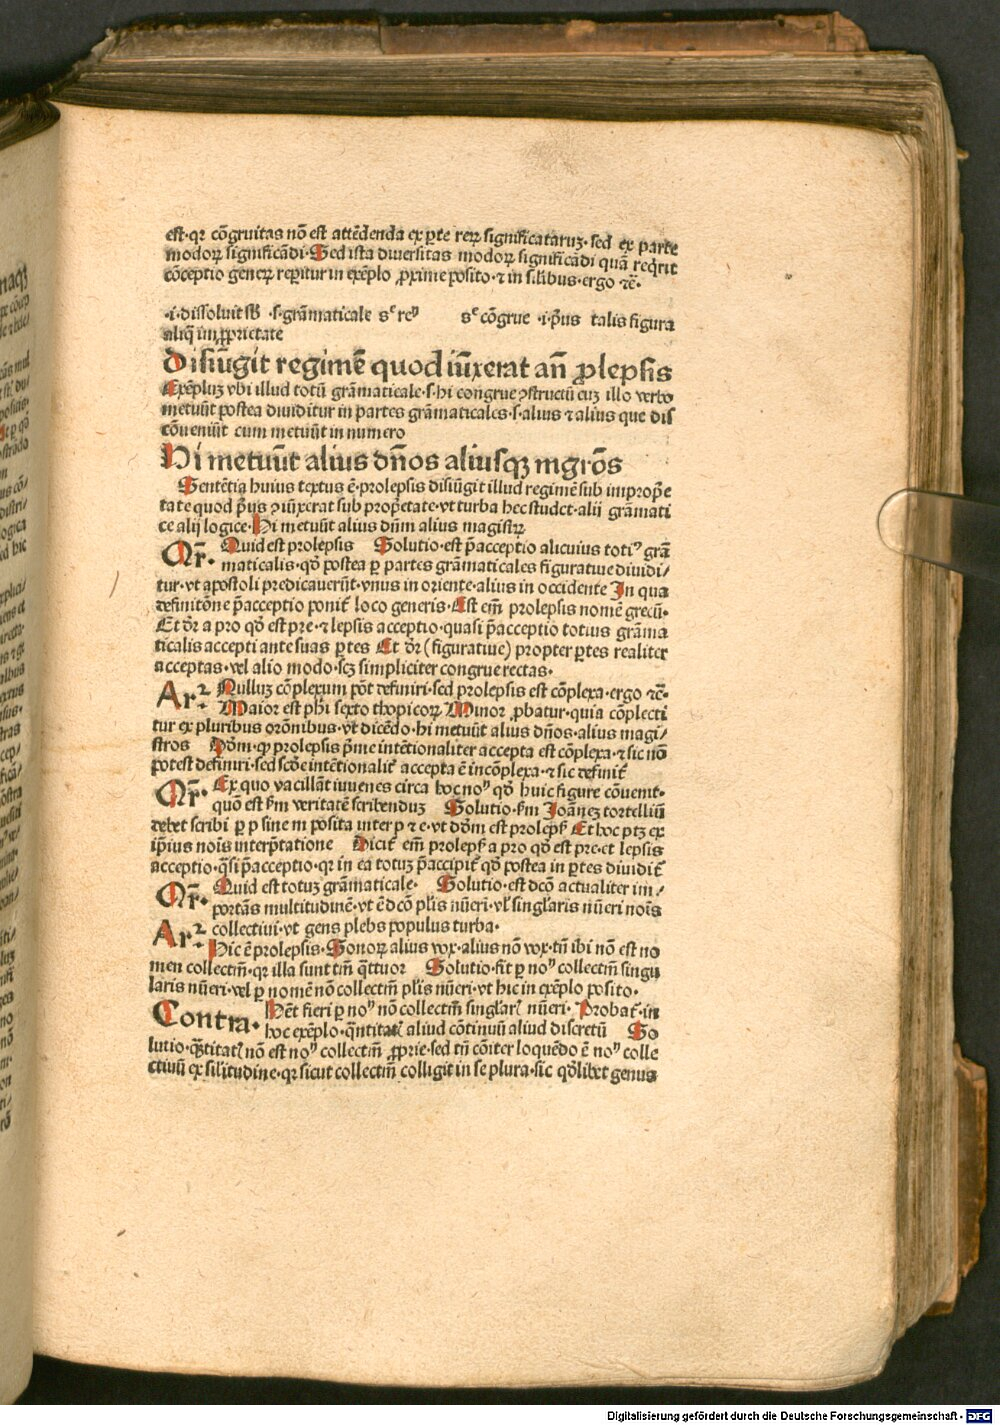 est·qr cōgruitas nō est attēdenda ex ꝑte reꝝ significataruꝫ· sed ex parte
modoꝝ significādi· Sed ista diuersitas modoꝝ significādi quā reqͥrit
cōceptio geneꝝ reꝑitur in exēplo ꝓxime posito·⁊ in silibus·ergo ⁊ē·
·i·dissoluit sꝫ ·s·grāmaticale sͤ reꝰ sͤ cōgrue ·i·p̄us talis figura
aliqͣ imꝓprietate
Disiūgit regimē quod iūxerat an̄ ꝓlepsis
Exēpluꝫ vbi illud totū grāmaticale·s·hi congrue ꝯstructū cuꝫ illo verbo
metuūt postea diuiditur in partes grāmaticales·s·alius ⁊ alius que dis
cōueniūt cum metuūt in numero
Hi metuūt alius dn̄os aliusqꝫ mgrōs
Sentētia huius textus ē·prolepsis disiūgit illud regimē sub improp̄e
tate quod p̄us ꝯiūxerat sub prop̄etate·vt turba hec studet·alij grāmati
ce alij logice· Hi metuūt alius dn̄m alius magistꝝ
Qr̄· Quid est prolepsis Solutio·est p̄acceptio alicuius totiꝰ grā
maticalis·qd̄ postea ꝑ partes grāmaticales figuratiue diuidi⸗
tur·vt apostoli predicauerūt·vnus in oriente·alius in occidente In qua
definitōne p̄acceptio ponit̄ loco generis· Est em̄ prolepsis nomē grecū·
Et dr̄ a pro qd̄ est pre·⁊ lepsis acceptio·quasi p̄acceptio totius grāma
ticalis accepti ante suas ꝑtes Et dr̄ (figuratiue) propter ꝑtes realiter
acceptas·vel alio modo·scꝫ simpliciter congrue rectas·
Arꝛ· Nulluꝫ cōplexum pōt definiri·sed prolepsis est cōplexa·ergo ⁊ē·
Maior est ph̄i sexto thopicoꝝ Minor ꝓbatur·quia cōplecti
tur ex pluribus orōnibus·vt dicēdo·hi metuūt alius dn̄os·alius magi⸗
stros Dōm·ꝙ prolepsis p̄me intētionaliter accepta est cōplexa·⁊ sic nō
potest definiri·sed scd̄e intētionalit̄ accepta ē incōplexa·⁊ sic definit̄
Qr̄· Ex quo vacillāt iuuenes circa hoc noꝰ qd̄ huic figure cōuenit·
quō est s̄m veritatē scribenduꝫ Solutio·s̄m Joāneꝫ tortelliū
debet scribi ꝑ p sine m posita inter p ⁊ e·vt dōm est proleps̄ Et hoc ptꝫ ex
ip̄ius nois interp̄tatione Dicit̄ em̄ proleps̄ a pro qd̄ est pre·et lepsis
acceptio·qͣsi p̄acceptio·qr in ea totuꝫ p̄accipit̄ qd̄ postea in ꝑtes diuidit̄
Qr̄· Quid est totuꝫ grāmaticale· Solutio·est dcō actualiter im⸗
portās multitudinē·vt ē dcō pl̄is nūeri·vl̓ singl̓aris nūeri nois
collectiui·vt gens plebs populus turba·
Arꝛ· Hic ē prolepsis· Sonoꝝ alius vox·alius nō vox·tn̄ ibi nō est no
men collectm̄·qr illa sunt tm̄ qͣttuor Solutio·fit ꝑ noꝰ collectm̄ singu
laris nūeri·vel ꝑ nomē nō collectm̄ pl̄is nūeri·vt hic in exēplo posito·
Contra· Hēt fieri ꝑ noꝰ nō collectm̄ singl̓ar̄ nūeri· Probat̄·in
hoc exēplo·qͣntitatū aliud cōtinuū aliud discretū So
lutio·qͣntitatū nō est noꝰ collectm̄ ꝓprie·sed tn̄ cōiter loquēdo ē noꝰ colle
ctiuū ex silitudine·qr sicut collectm̄ colligit in se plura·sic qd̄libet genus
Digitalisierung gefördert durch die Deutsche Forschungsgemeinschaft - DFG